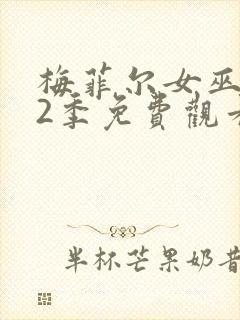 梅菲尔女巫
2季免費觀看
半杯芒果奶昔